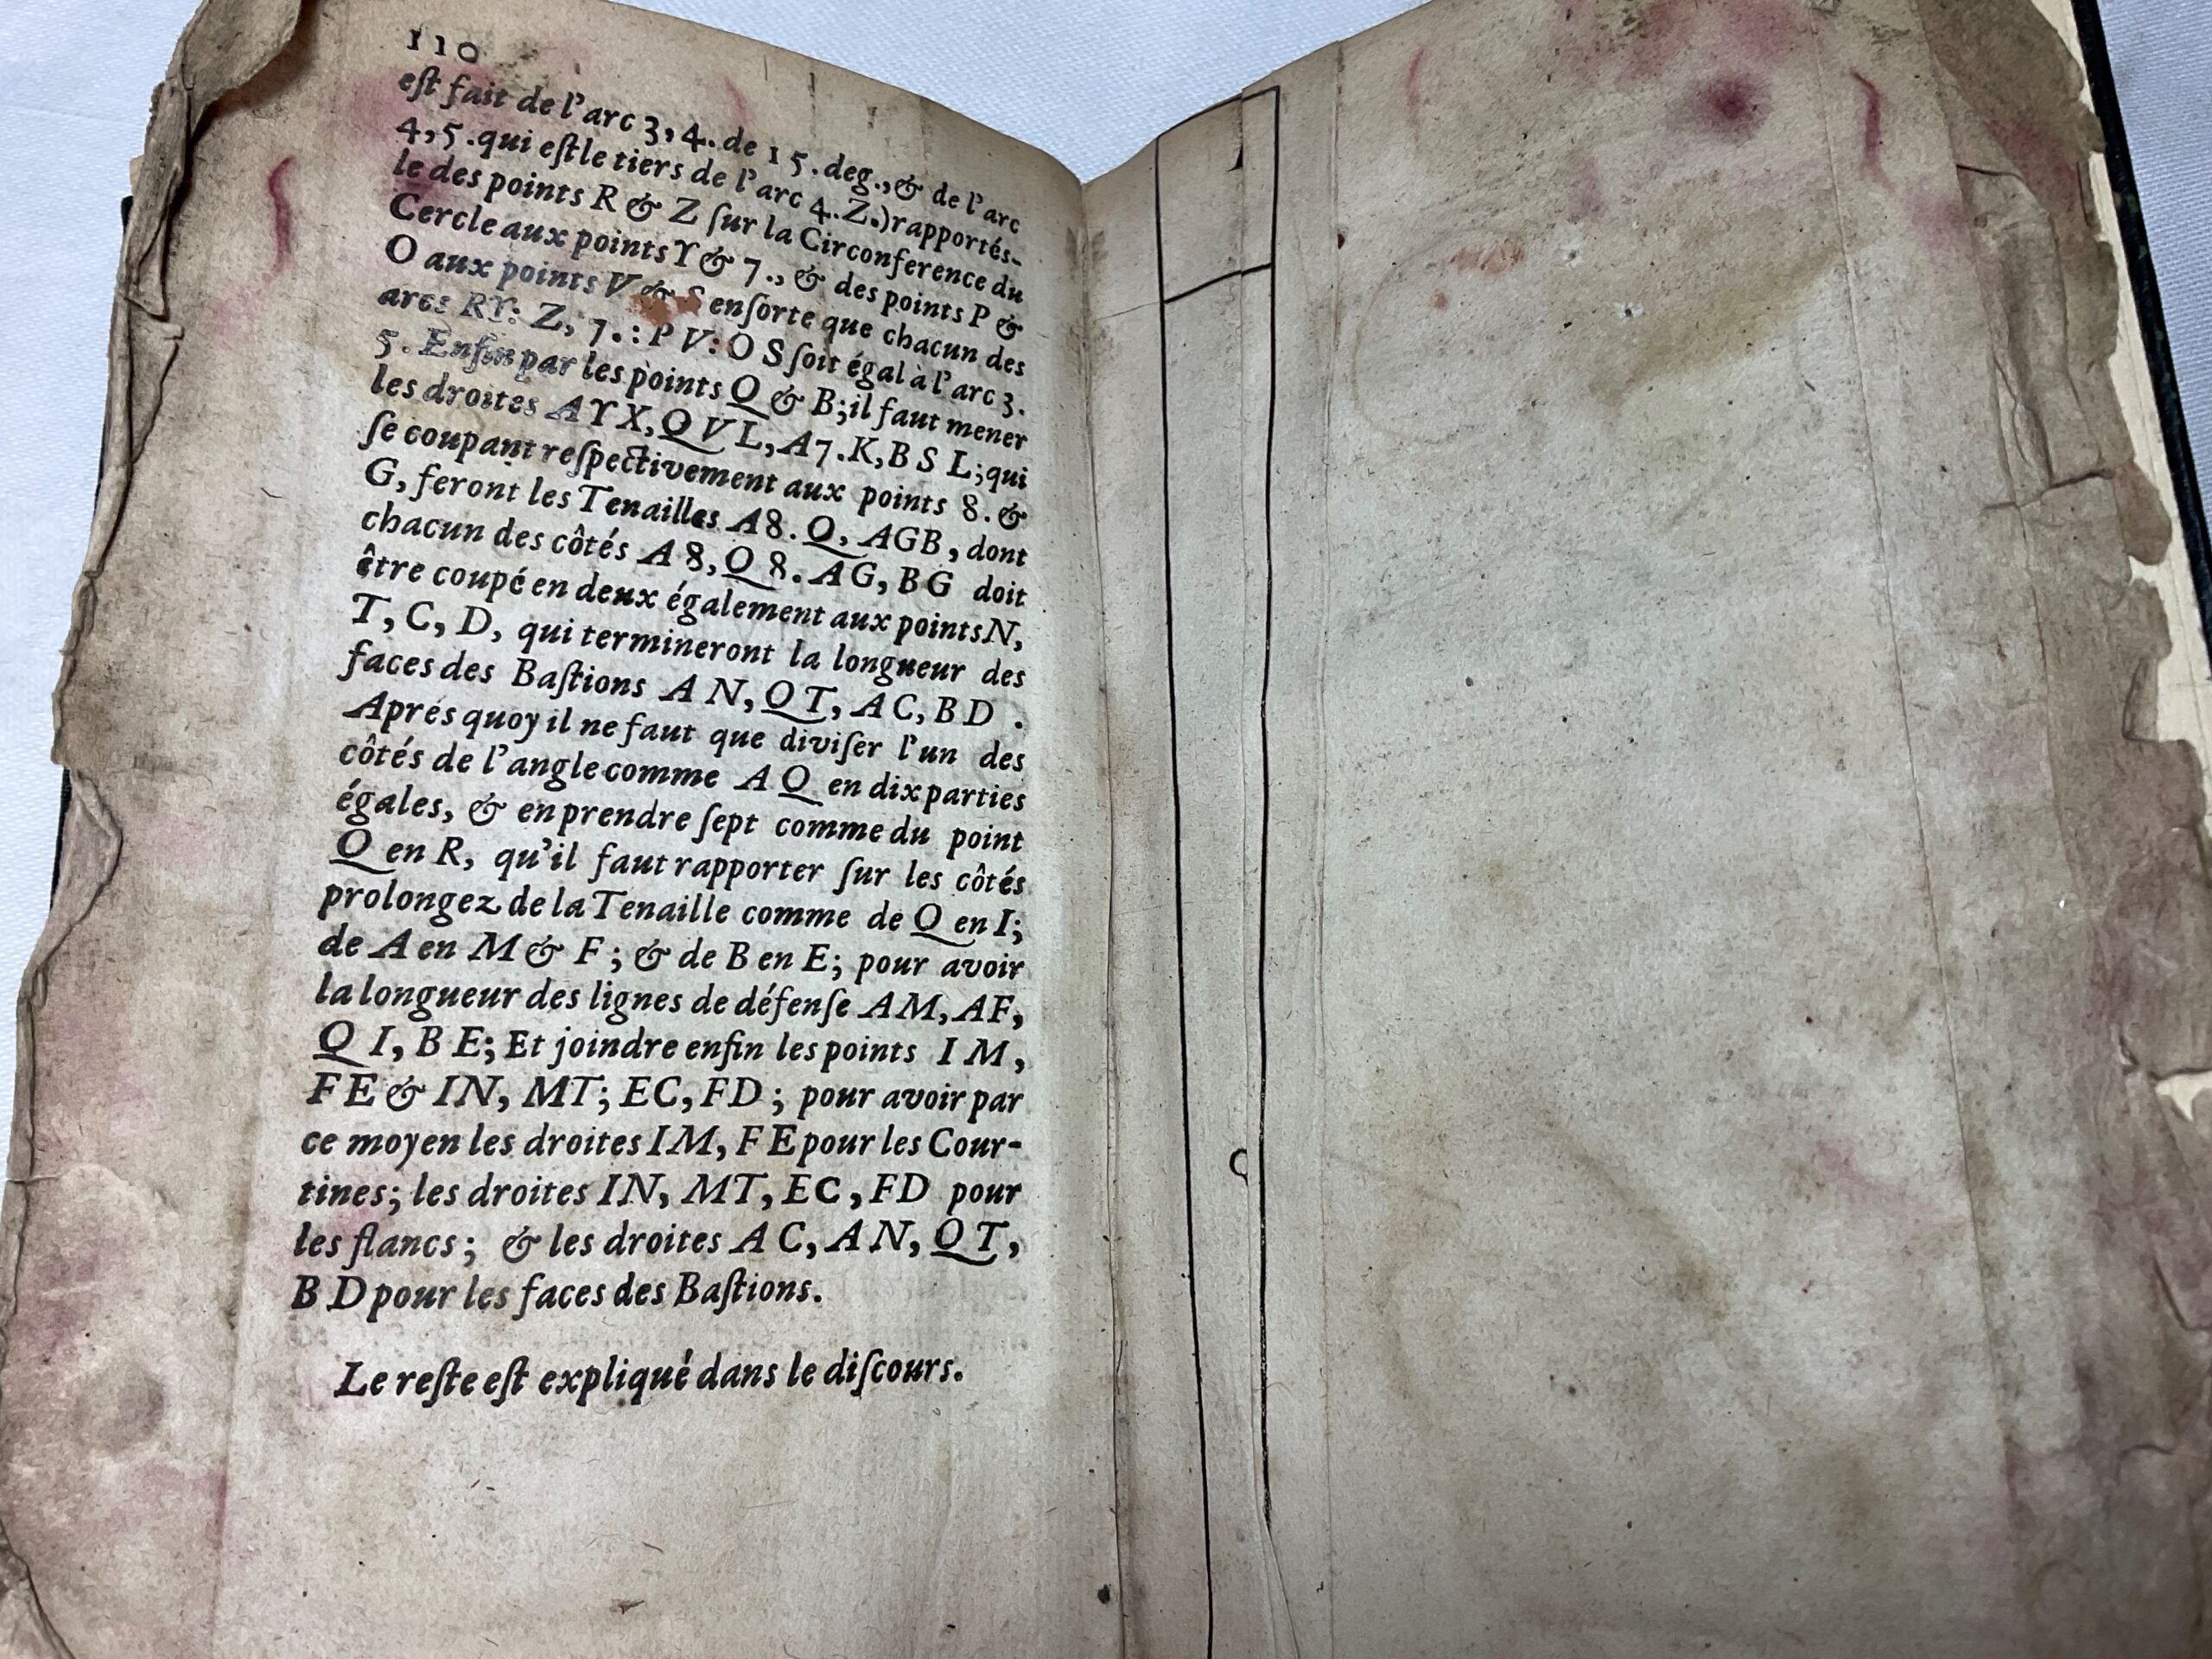 110
eſt fait de l'arc 3, 4. de 15. deg., & de l'arc
4, 5. qui eſt le tiers de l'arc 4. Z.) rapportés-
le des points R & Z ſur la Circonference du
Cercle aux points Y & 7., & des points P &
O aux points V & S enſorte que chacun des
arcs RY: Z, 7.: P V: O S ſoit égal à l'arc 3.
5. Enfin par les points Q & B; il faut mener
les droites A Y X, Q V L, A 7. K, B S L; qui
ſe coupant reſpectivement aux points 8. &
G, feront les Tenailles A 8. Q, AGB, dont
chacun des côtés A 8, Q 8. AG, BG doit
être coupé en deux également aux points N,
T, C, D, qui termineront la longueur des
faces des Baſtions A N, Q T, A C, B D .
Aprés quoy il ne faut que diviſer l'un des
côtés de l'angle comme A Q en dix parties
égales, & en prendre ſept comme du point
Q en R, qu'il faut rapporter ſur les côtés
prolongez de la Tenaille comme de Q en I;
de A en M & F ; & de B en E; pour avoir
la longueur des lignes de défenſe AM, AF,
Q I, B E; Et joindre enfin les points I M,
F E & IN, MT; EC, FD ; pour avoir par
ce moyen les droites IM, F E pour les Cour-
tines; les droites IN, MT, EC, FD pour
les flancs ; & les droites A C, A N, Q T,
B D pour les faces des Baſtions.
Le reſte eſt expliqué dans le diſcours.